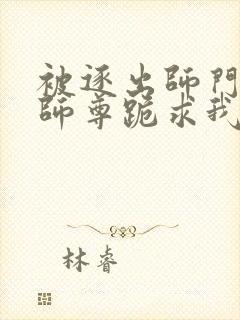 被逐出師門
師尊跪求我
林睿